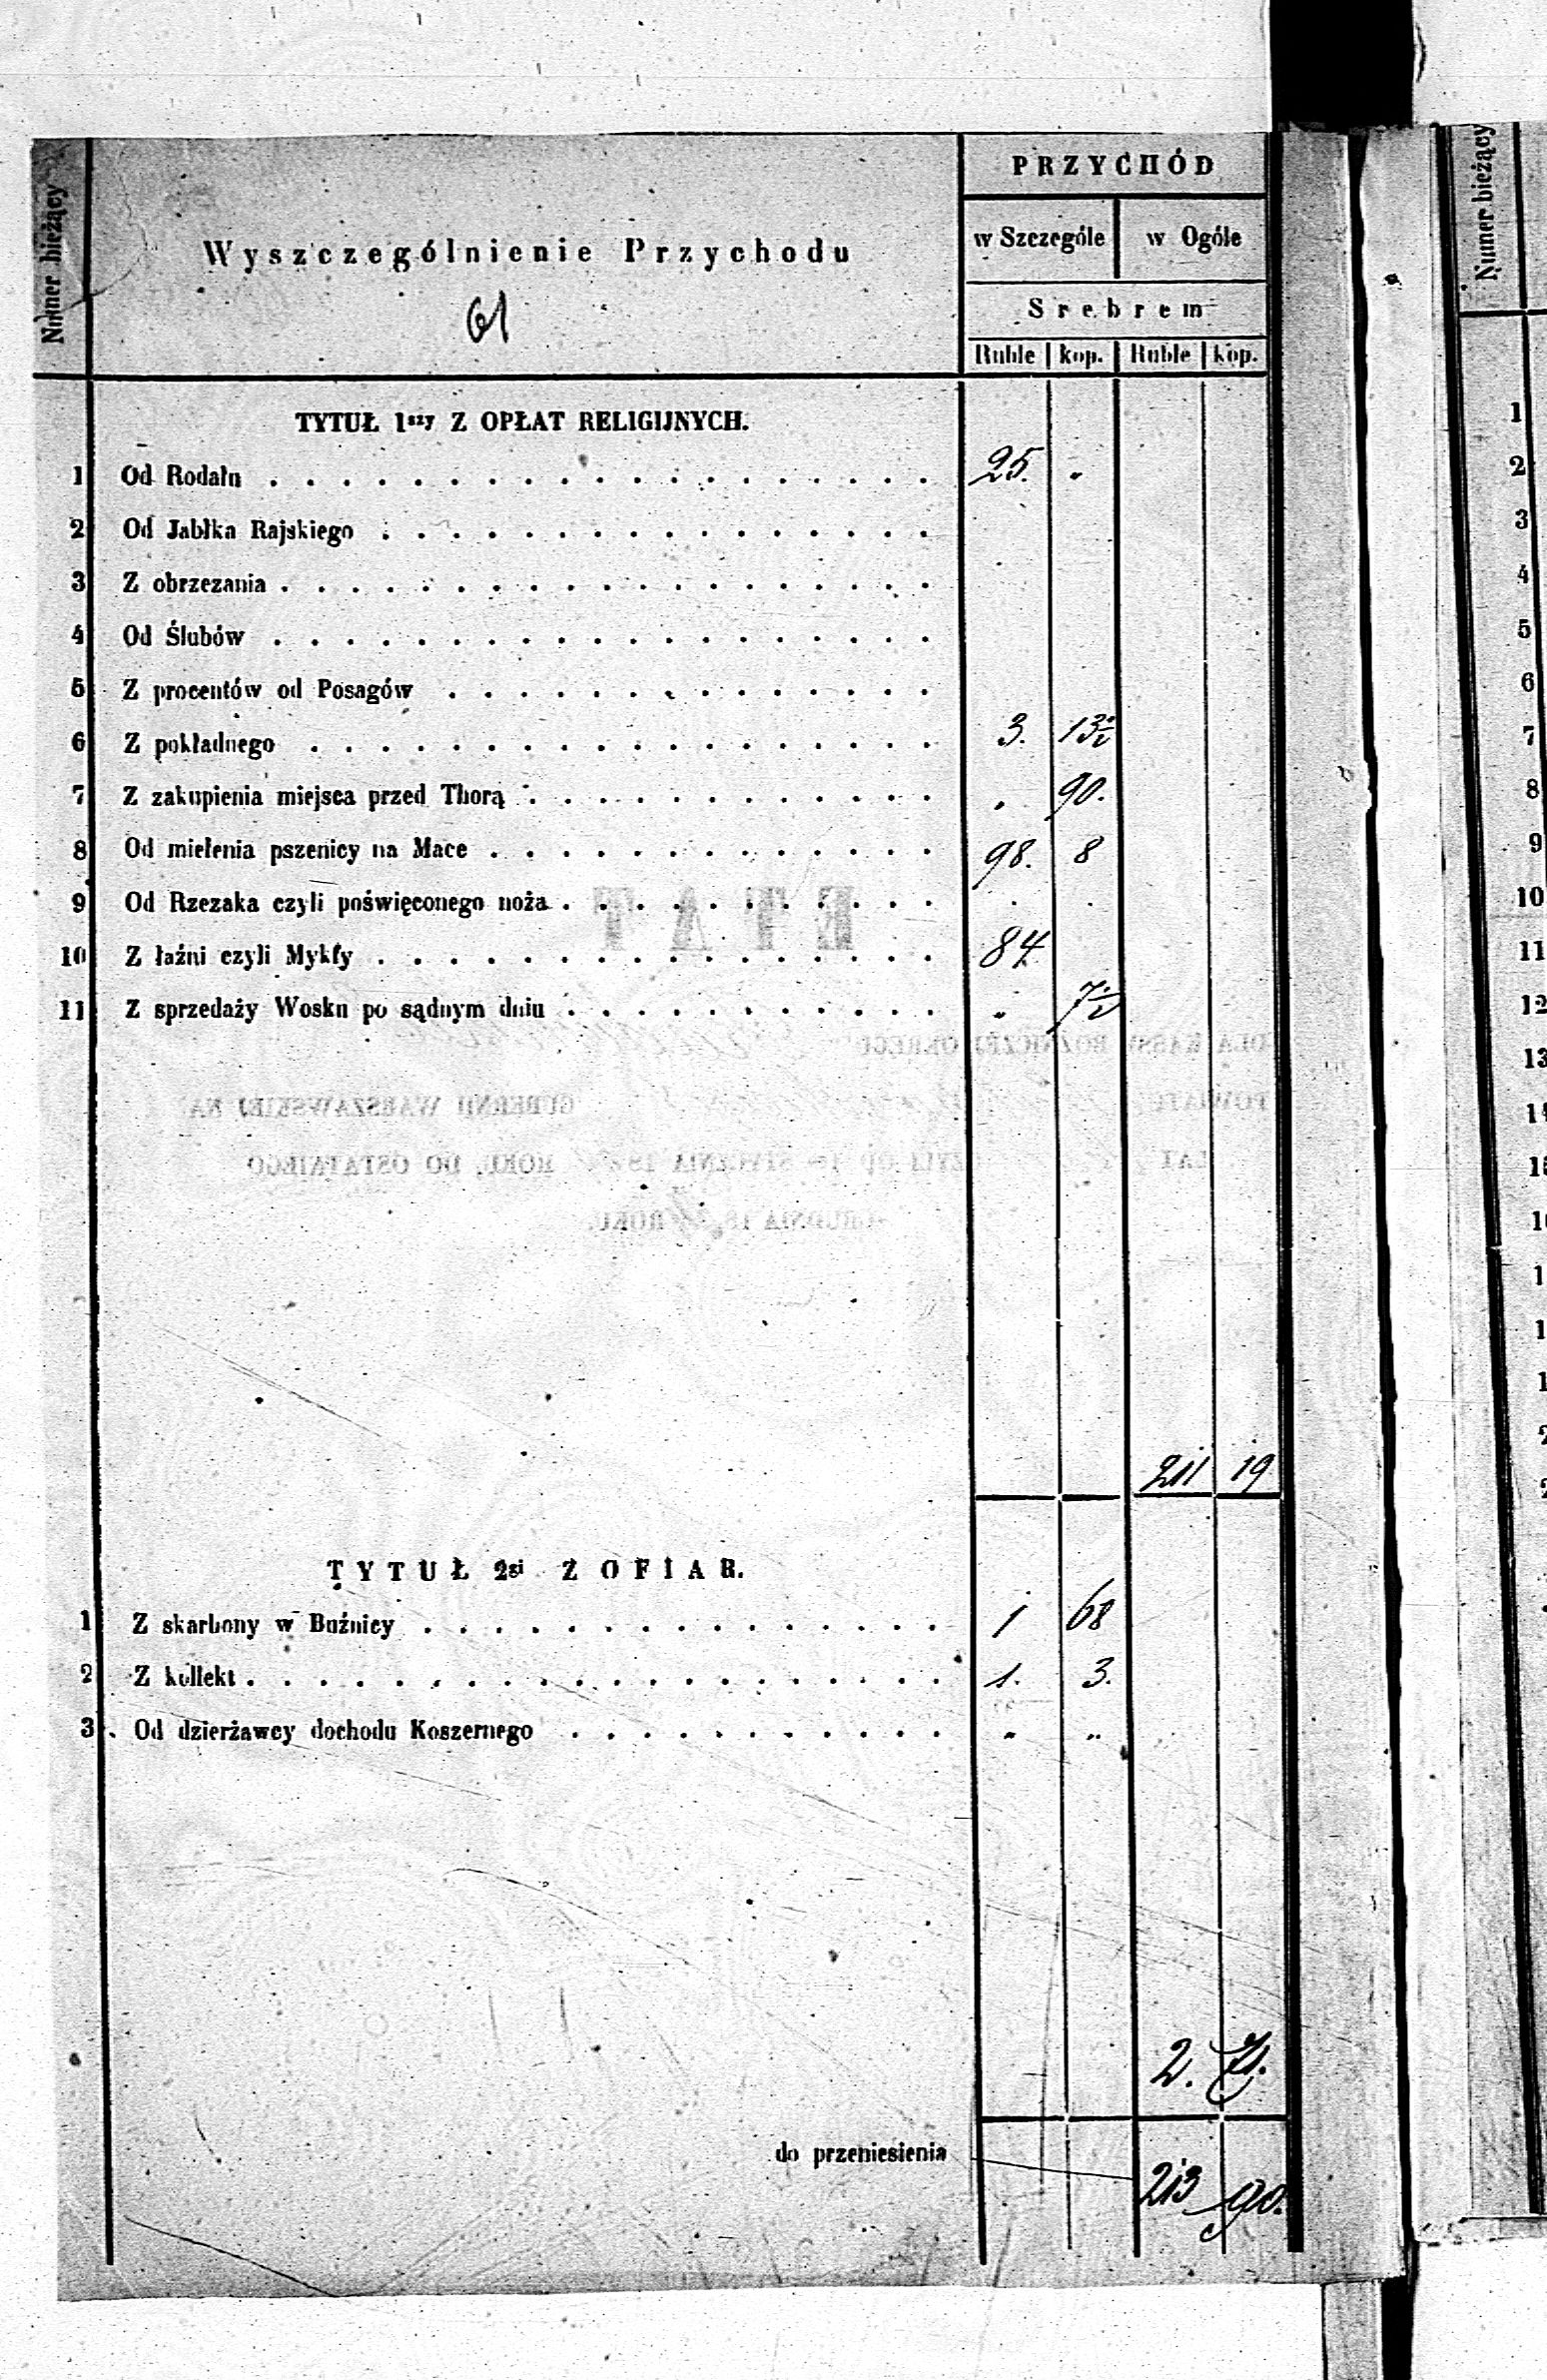 Numer bieżący
Wyszczególnienie Przychodu
61
PRZYCHÓD
w Szczególe w Ogóle
Srebrem
Ruble kop. Ruble kop.
TYTUŁ 1szy Z OPŁAT RELIGIJNYCH.
1 Od Rodału . . . . . . . . . . . . . . . . . . . 25. "
2 Od Jabłka Rajskiego . . . . . . . . . . . . . . . .
3 Z obrzezania . . . . . . . . . . . . . . . . . . .
4 Od Ślubów . . . . . . . . . . . . . . . . . . .
5 Z procentów od Posagów . . . . . . . . . . . . . .
6 Z pokładnego . . . . . . . . . . . . . . . . . . 3. 13½
7 Z zakupienia miejsca przed Thorą . . . . . . . . . . . . " 90.
8 Od mielenia pszenicy na Mace . . . . . . . . . . . . . 98. 8
9 Od Rzezaka czyli poświęconego noża . . . . . . . . . . .
10 Z łaźni czyli Mykfy . . . . . . . . . . . . . . . . 84
11 Z sprzedaży Wosku po sądnym dniu . . . . . . . . . . . " 7½
211 19
TYTUŁ 2gi Z OFIAR.
1 Z skarbony w Bużnicy . . . . . . . . . . . . . . . 1 68
2 Z kollekt . . . . . . . . . . . . . . . . . . . . 1. 3.
3 Od dzierżawcy dochodu Koszernego . . . . . . . . . . . " "
2. 71.
do przeniesienia 213 90.
Numer bieżący
1
2
3
4
5
6
7
8
9
10
11
12
13